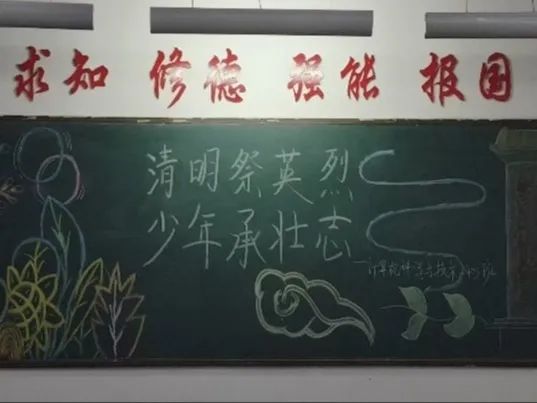 求知 修德 强能 报国
清明祭英烈
少年承壮志